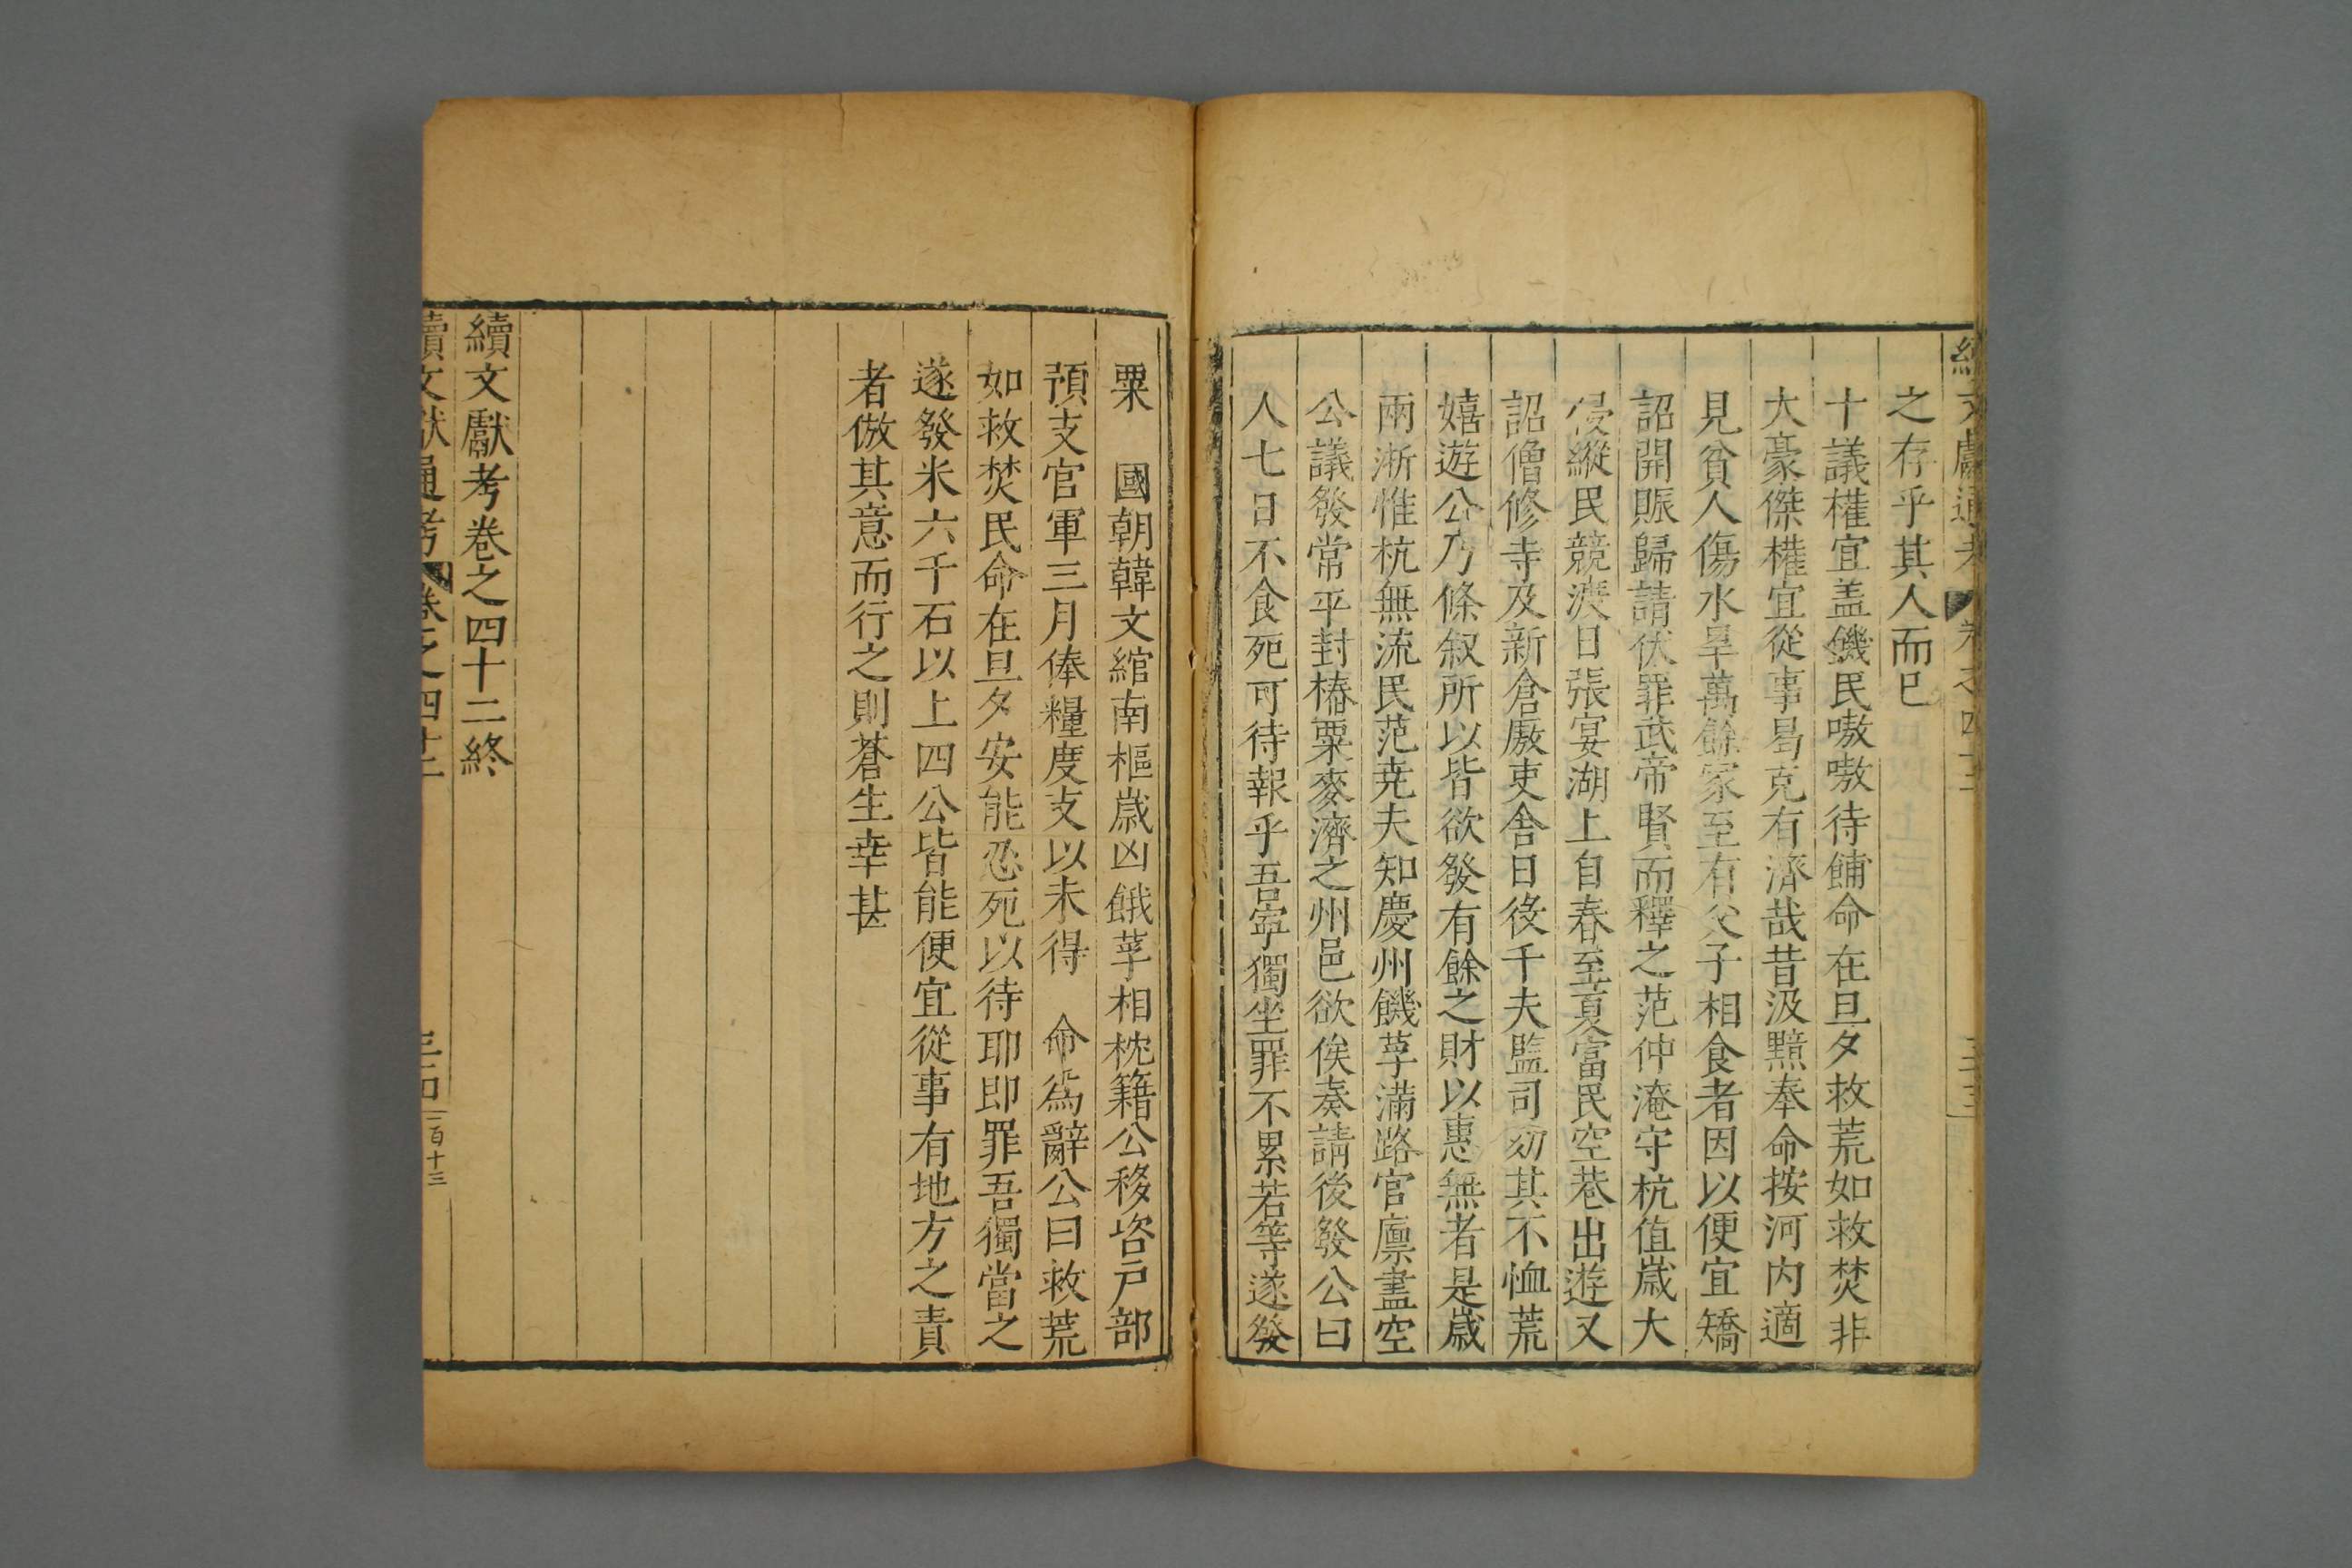 之存乎其人而已
十議權宜盖饑民嗷嗷待餔命在旦夕救荒如救焚非
大豪傑權宜從事曷克有濟哉昔汲黯奉命按河内適
見貧人傷水旱萬餘家至有父子相食者因以便宜矯
詔開賑歸請伏罪武帝賢而釋之范仲淹守杭值歲大
侵縱民競渡日張宴湖上自春至夏富民空巷出遊又
詔僧修寺及新倉厫吏舍日役千夫監司劾其不恤荒
嬉遊公乃條叙所以皆欲發有餘之財以惠無者是歲
兩淅惟杭無流民范尭夫知慶州饑莩滿路官廪盡空
公議發常平封樁粟麥濟之州邑欲俟奏請後發公曰
人七日不食死可待報乎吾寧獨坐罪不累若等遂發
粟　國朝韓文綰南樞歲凶餓莩相枕籍公移咨戸部
預支官軍三月俸糧度支以未得　命爲辭公曰救荒
如救焚民命在旦夕安能忍死以待耶即罪吾獨當之
遂發米六千石以上四公皆能便宜從事有地方之責
者倣其意而行之則蒼生幸甚
續文獻考卷之四十二終
續文獻通考 卷之四十二 三十四 二百十三